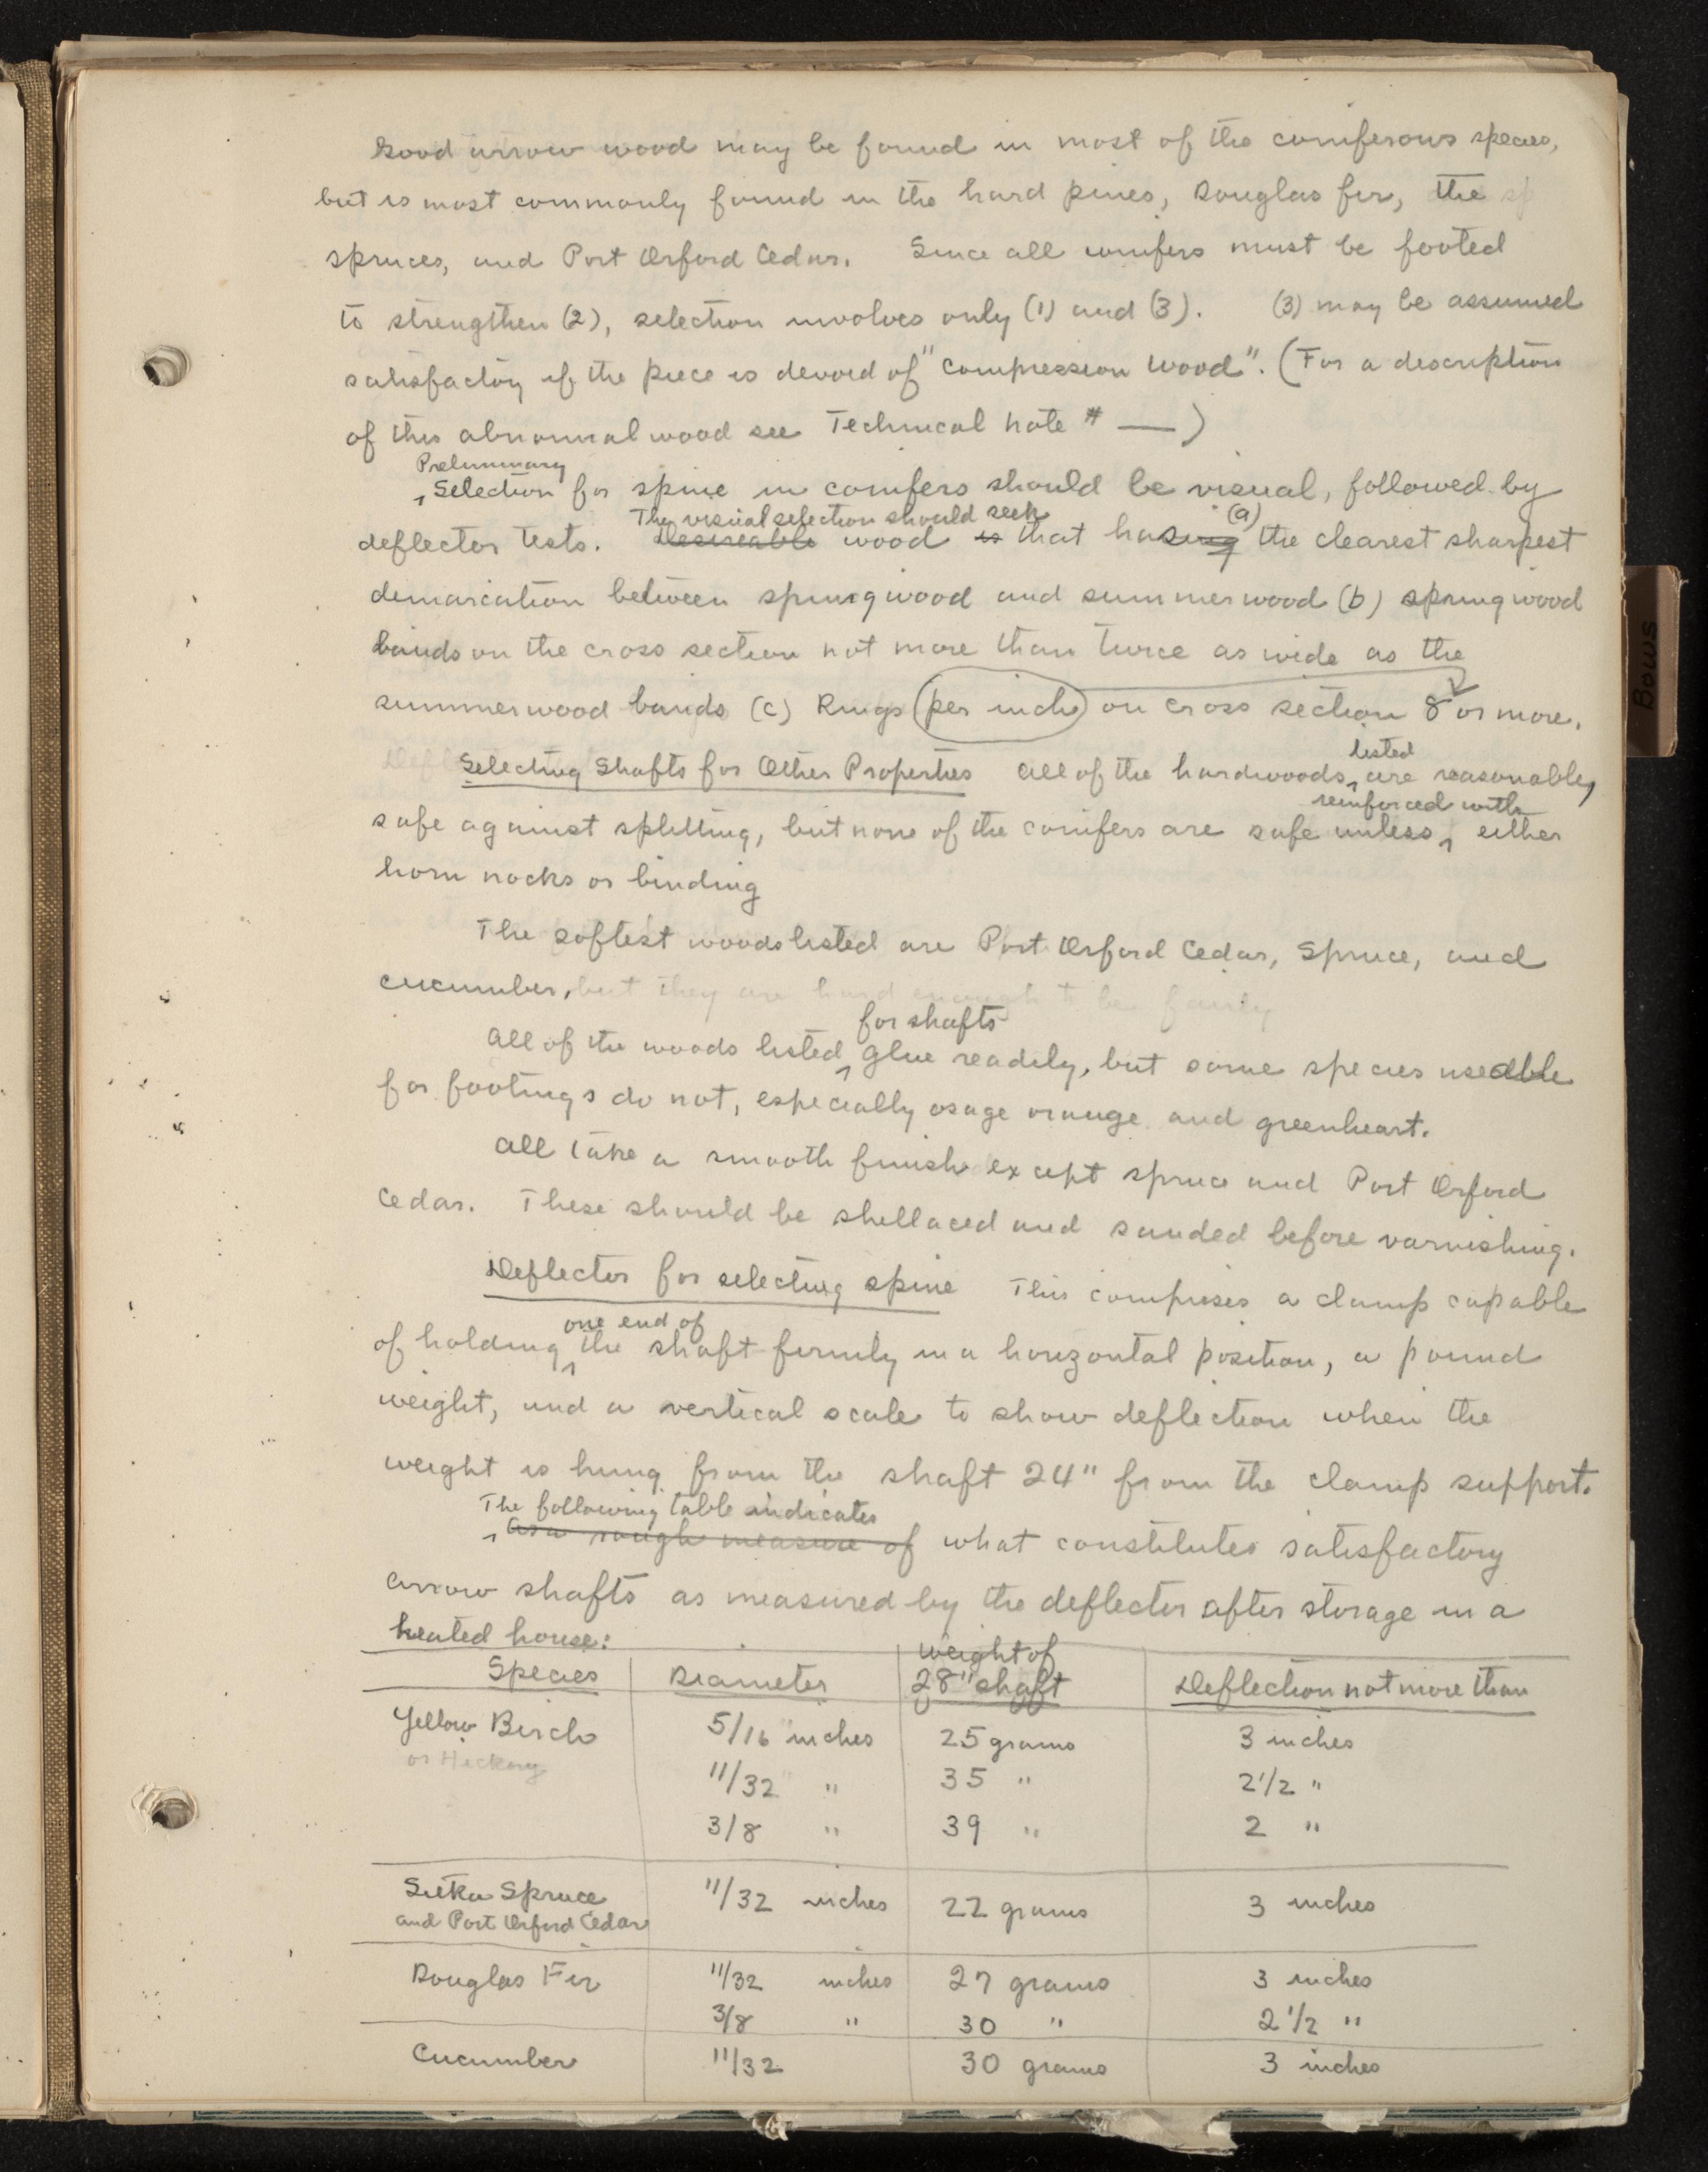 Good arrow wood may be found in most of the coniferous species,
but is most commonly found in the hard pines, Douglas fir, the sp
spruces, and Port Orford Cedar. Since all conifers must be footed
to strengthen (2), selection involves only (1) and (3). (3) may be assumed
satisfactory if the piece is devoid of "compression wood". (For a description
of this abnormal wood see Technical Note # — )
Preliminary
Selection for spine in conifers should be visual, followed by
The visual selection should seek (a)
deflector tests. Desireable wood is that having the clearest sharpest
demarcation between springwood and summerwood (b) springwood
bands on the cross section not more than twice as wide as the
summerwood bands (c) Rings per inch on cross section 8 or more.
listed
Selecting Shafts for Other Properties All of the hardwoods are reasonably
reinforced with
safe against splitting, but none of the conifers are safe unless either
horn nocks or binding
The softest woods listed are Port Orford Cedar, Spruce, and
cucumber, but they are hard enough to be fairly
for shafts
All of the woods listed glue readily, but some species useable
for footings do not, especially osage orange and greenheart.
All take a smooth finish except spruce and Port Orford
Cedar. These should be shellaced and sanded before varnishing.
Deflector for selecting spine This comprises a clamp capable
one end of
of holding the shaft firmly in a horizontal position, a pound
weight, and a vertical scale to show deflection when the
weight is hung from the shaft 24" from the clamp support.
The following table indicates
As a rough measure of what constitutes satisfactory
arrow shafts as measured by the deflector after storage in a
heated house:
Species Diameter Weight of 28" shaft Deflection not more than
Yellow Birch 5/16 inches 25 grams 3 inches
or Hickory 11/32 " 35 " 2 1/2 "
3/8 " 39 " 2 "
Sitka Spruce 11/32 inches 22 grams 3 inches
and Port Orford Cedar
Douglas Fir 11/32 inches 27 grams 3 inches
3/8 " 30 " 2 1/2 "
Cucumber 11/32 30 grams 3 inches
Bows